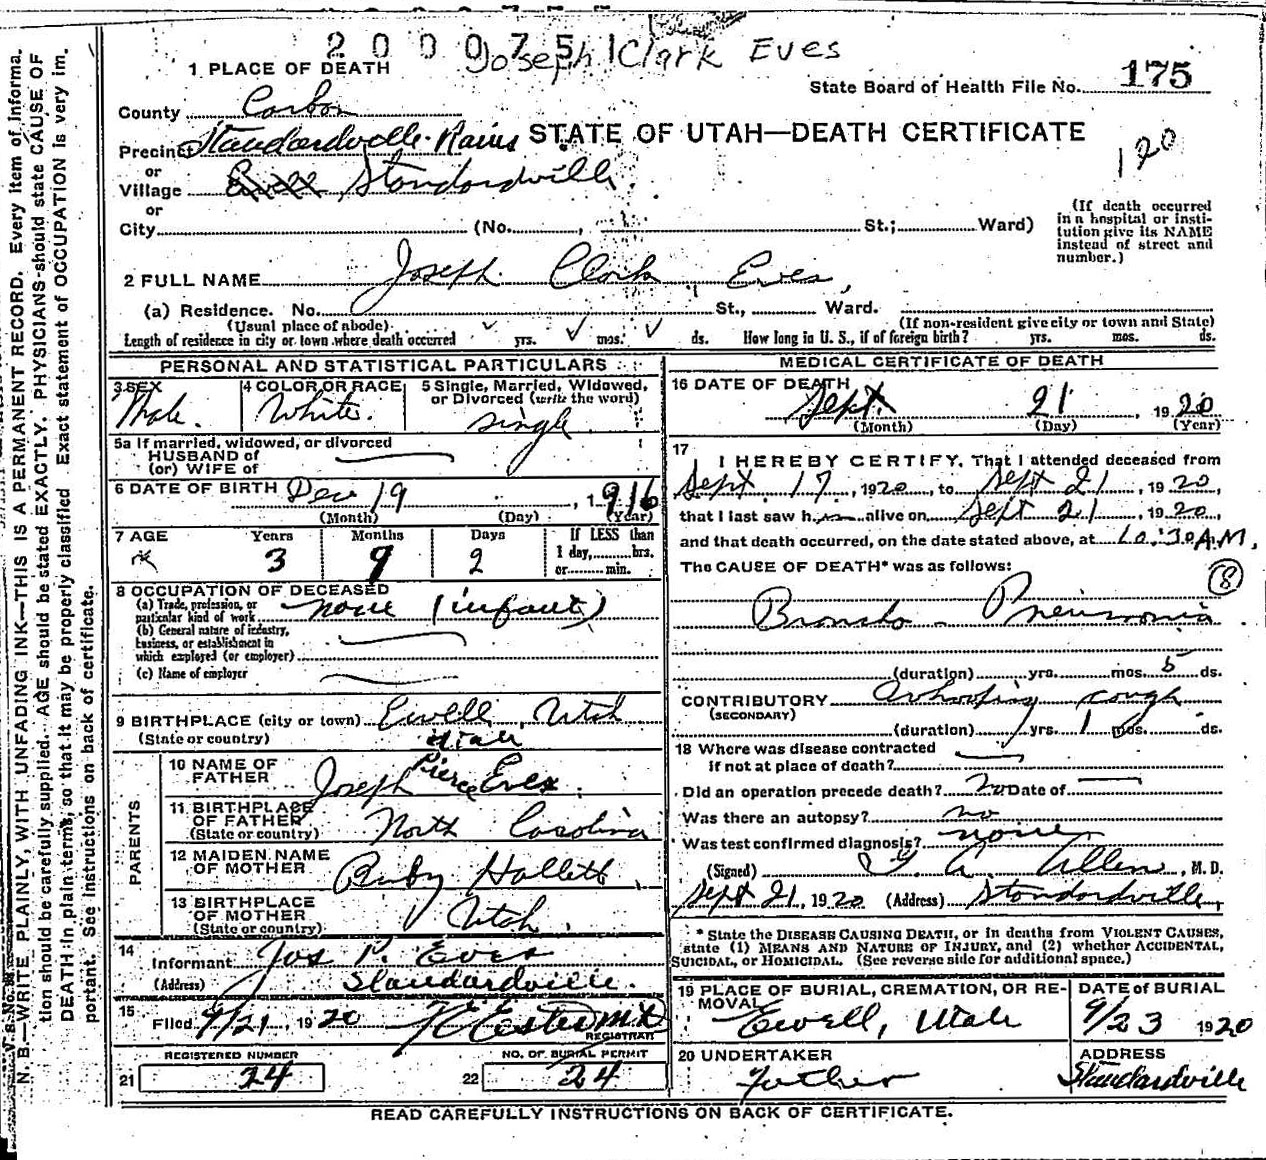 2000751
Joseph Clark Eves
1 PLACE OF DEATH
State Board of Health File No. 175
County Carbon
Precinct Standardville-Rains STATE OF UTAH—DEATH CERTIFICATE
120
or
Village Standardville
or
City (No. St.; Ward)
(If death occurred in a hospital or insti-
tution give its NAME
instead of street and
number.)
2 FULL NAME Joseph Clark Eves,
(a) Residence. No. St., Ward.
(Usual place of abode) (If non-resident give city or town and State)
Length of residence in city or town where death occurred yrs. mos. ds. How long in U. S., if of foreign birth? yrs. mos. ds.
PERSONAL AND STATISTICAL PARTICULARS
3 SEX Male.
4 COLOR OR RACE White.
5 Single, Married, Widowed,
or Divorced (write the word)
single
5a If married, widowed, or divorced
HUSBAND of
(or) WIFE of
6 DATE OF BIRTH Dec 19, 1916
(Month) (Day) (Year)
7 AGE Years Months Days If LESS than
3 9 2 1 day, hrs.
or min.
8 OCCUPATION OF DECEASED
(a) Trade, profession, or
particular kind of work none (infant)
(b) General nature of industry,
business, or establishment in
which employed (or employer)
(c) Name of employer
9 BIRTHPLACE (city or town) Ewell, Utah
(State or country) Utah
PARENTS
10 NAME OF
FATHER Joseph Pierce Eves
11 BIRTHPLACE
OF FATHER
(State or country) North Carolina
12 MAIDEN NAME
OF MOTHER Ruby Hallett
13 BIRTHPLACE
OF MOTHER
(State or country) Utah.
14
Informant Jos P. Eves
(Address) Standardville.
15
Filed 9/21, 1920
REGISTRAR
REGISTERED NUMBER
21 24
NO. OF BURIAL PERMIT
22 24
MEDICAL CERTIFICATE OF DEATH
16 DATE OF DEATH
Sept. 21, 1920
(Month) (Day) (Year)
17
I HEREBY CERTIFY, That I attended deceased from
Sept. 17, 1920, to Sept 21, 1920,
that I last saw him alive on Sept 21, 1920,
and that death occurred, on the date stated above, at 10:30 A.M,
The CAUSE OF DEATH* was as follows:
8
Broncho-Pneumonia
(duration) yrs. mos. 5 ds.
CONTRIBUTORY whooping cough
(SECONDARY)
(duration) yrs. 1 mos. ds.
18 Where was disease contracted
if not at place of death?
Did an operation precede death? no Date of
Was there an autopsy? no
Was test confirmed diagnosis? none
(Signed) Allen, M. D.
Sept 21, 1920 (Address) Standardville,
* State the DISEASE CAUSING DEATH, or in deaths from VIOLENT CAUSES,
state (1) MEANS AND NATURE OF INJURY, and (2) whether ACCIDENTAL,
SUICIDAL, or HOMICIDAL. (See reverse side for additional space.)
19 PLACE OF BURIAL, CREMATION, OR RE-
MOVAL
Ewell, Utah
DATE of BURIAL
9/23 1920
20 UNDERTAKER
Father
ADDRESS
Standardville
READ CAREFULLY INSTRUCTIONS ON BACK OF CERTIFICATE.
N. B.—WRITE PLAINLY, WITH UNFADING INK—THIS IS A PERMANENT RECORD. Every item of informa-
tion should be carefully supplied. AGE should be stated EXACTLY. PHYSICIANS should state CAUSE OF
DEATH in plain terms, so that it may be properly classified. Exact statement of OCCUPATION is very im-
portant. See instructions on back of certificate.